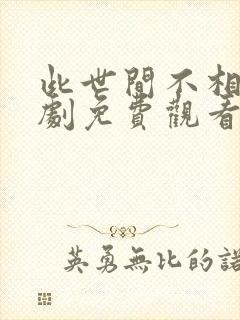 此世間不相
劇免費觀看
英勇無比的諾